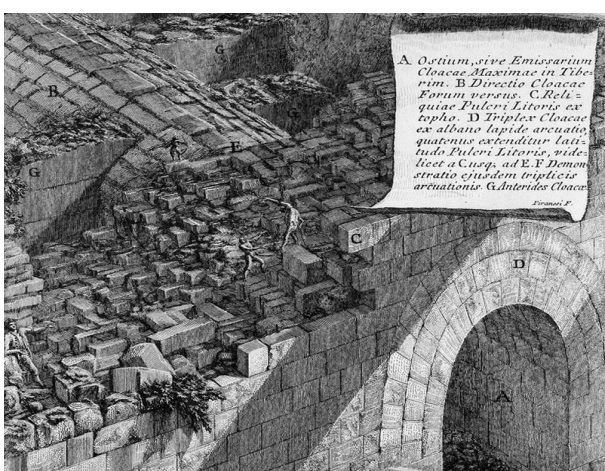 A Ostium, sive Emissarium
Cloacae Maximae in Tibe-
rim. B Directio Cloacae
Forum versus. C. Reli=
quiae Pulcri Litoris ex
topho. D Triplex Cloacae
ex albano lapide arcuatio,
quatenus extenditur lati=
tudo Pulcri Litoris, vide=
licet a C usq. ad E. F Demon
stratio ejusdem triplicis
arcuationis. G. Anterides Cloacae
Piranesi F.
G
B
G
E
G
C
D
A